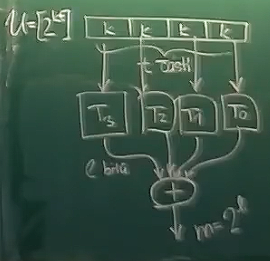 U=[2^{kt}]
k k k k
t částí
T₃ T₂ T₁ T₀
ℓ bitů
+
m=2^ℓ